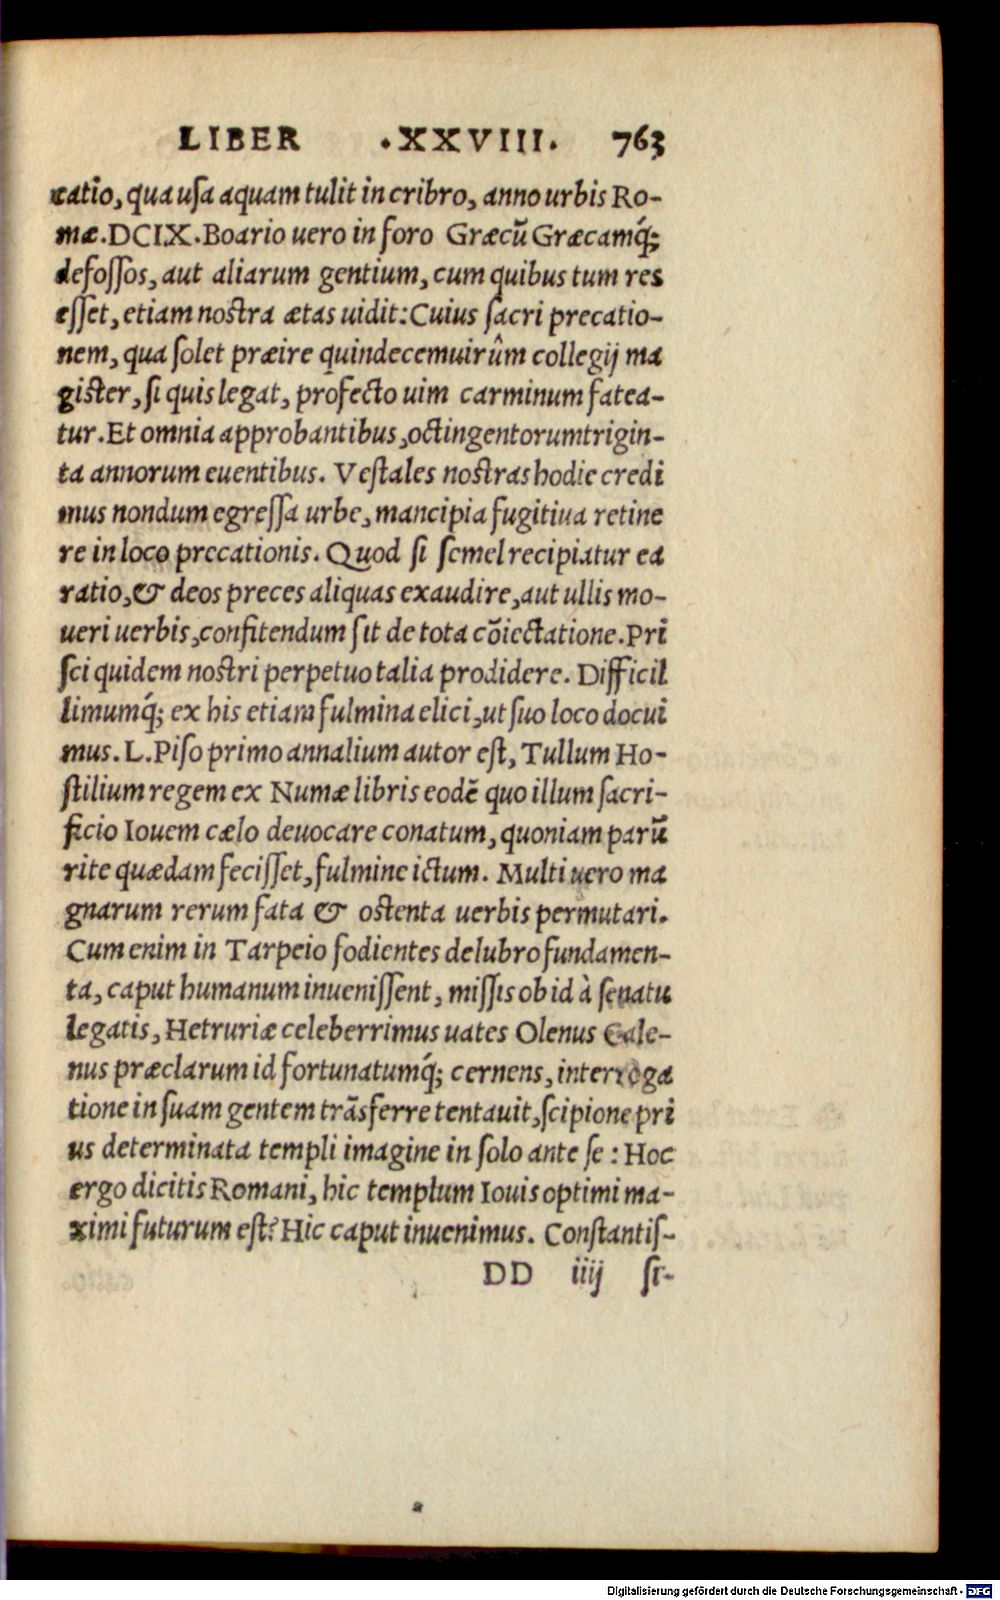 LIBER .XXVIII. 763
catio, qua uſa aquam tulit in cribro, anno urbis Ro-
mæ.DCIX.Boario uero in foro Græcũ Græcamq́;
defoſſos, aut aliarum gentium, cum quibus tum res
eſſet, etiam noſtra ætas uidit: Cuius ſacri precatio-
nem, qua ſolet præire quindecemuirûm collegij ma
giſter, ſi quis legat, profecto uim carminum fatea-
tur. Et omnia approbantibus, octingentorumtrigin-
ta annorum euentibus. Veſtales noſtras hodie credi
mus nondum egreſſa urbe, mancipia fugitiua retine
re in loco precationis. Quod ſi ſemel recipiatur ea
ratio, & deos preces aliquas exaudire, aut ullis mo-
ueri uerbis, confitendum ſit de tota cõiectatione. Pri
ſci quidem noſtri perpetuo talia prodidere. Difficil
limumq́; ex his etiam fulmina elici, ut ſuo loco docui
mus. L. Piſo primo annalium autor eſt, Tullum Ho-
ſtilium regem ex Numæ libris eodẽ quo illum ſacri-
ficio Iouem cælo deuocare conatum, quoniam parũ
rite quædam feciſſet, fulmine ictum. Multi uero ma
gnarum rerum fata & oſtenta uerbis permutari.
Cum enim in Tarpeio fodientes delubro fundamen-
ta, caput humanum inueniſſent, miſſis ob id à ſenatu
legatis, Hetruriæ celeberrimus uates Olenus Cale-
nus præclarum id fortunatumq́; cernens, interroga
tione in ſuam gentem trãsferre tentauit, ſcipione pri
us determinata templi imagine in ſolo ante ſe: Hoc
ergo dicitis Romani, hic templum Iouis optimi ma-
ximi futurum eſt? Hic caput inuenimus. Conſtantiſ-
DD iiij ſi-
Digitalisierung gefördert durch die Deutsche Forschungsgemeinschaft - DFG